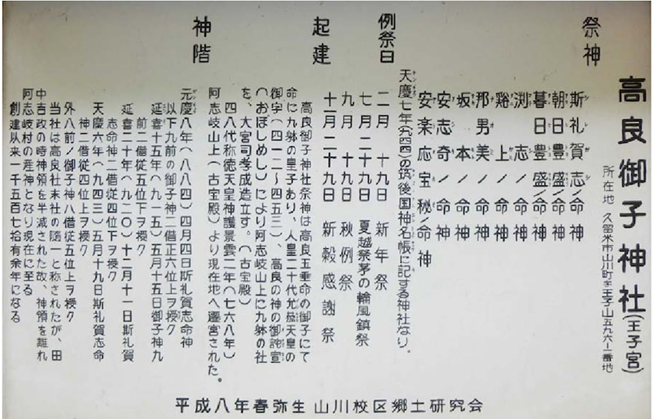 高良御子神社(王子宮)
所在地 久留米市山川町王子山五九六ー一番地
祭神
斯礼賀志ノ命神
朝日豊盛ノ命神
暮日豊盛ノ命神
渕志ノ命神
谿上ノ命神
那男美ノ命神
坂本ノ命神
安志奇ノ命神
安楽応宝秘ノ命神
天慶七年(九四四)の筑後国神名帳に記する神社なり。
例祭日
二月十九日 新年祭
七月二十九日 夏越祭茅の輪風鎮祭
九月十九日 秋例祭
十二月二十九日 新穀感謝祭
起建
高良御子神社祭神は高良玉垂命の御子にて
命に九躰の皇子あり、人皇二十代允恭天皇の
御宇(四一二~四五三)、高良の神の御託宣
(おぼしめし)により阿志岐山上に九躰の社
を、大宮司孝成造立す。(古宝殿)
四八代称徳天皇神護景雲二年(七六八年)
阿志岐山上(古宝殿)より現在地へ遷宮された。
神階
元慶八年(八八四)四月四日斯礼賀志命神
以下九前の御子神ニ借正六位上ヲ授ク
延喜十五年(九一五)五月十五日御子神九
前ニ借従五位下ヲ授ク
延喜二十年(九二〇)十二月十一日斯礼賀
志命神ニ借従四位下ヲ授ク
天慶六年(九四三)五月十九日斯礼賀志命
神ニ借従四位上ヲ授ク
外八前ノ御子神ハ借従五位上ヲ授ク
当社は高良社末社の随一と称されたが、田
中吉政の時神領を半減された故、神領を離れ
阿志岐村の産神となり現在に至る
創建以来一千五百七拾有余年になる
平成八年春弥生 山川校区郷土研究会